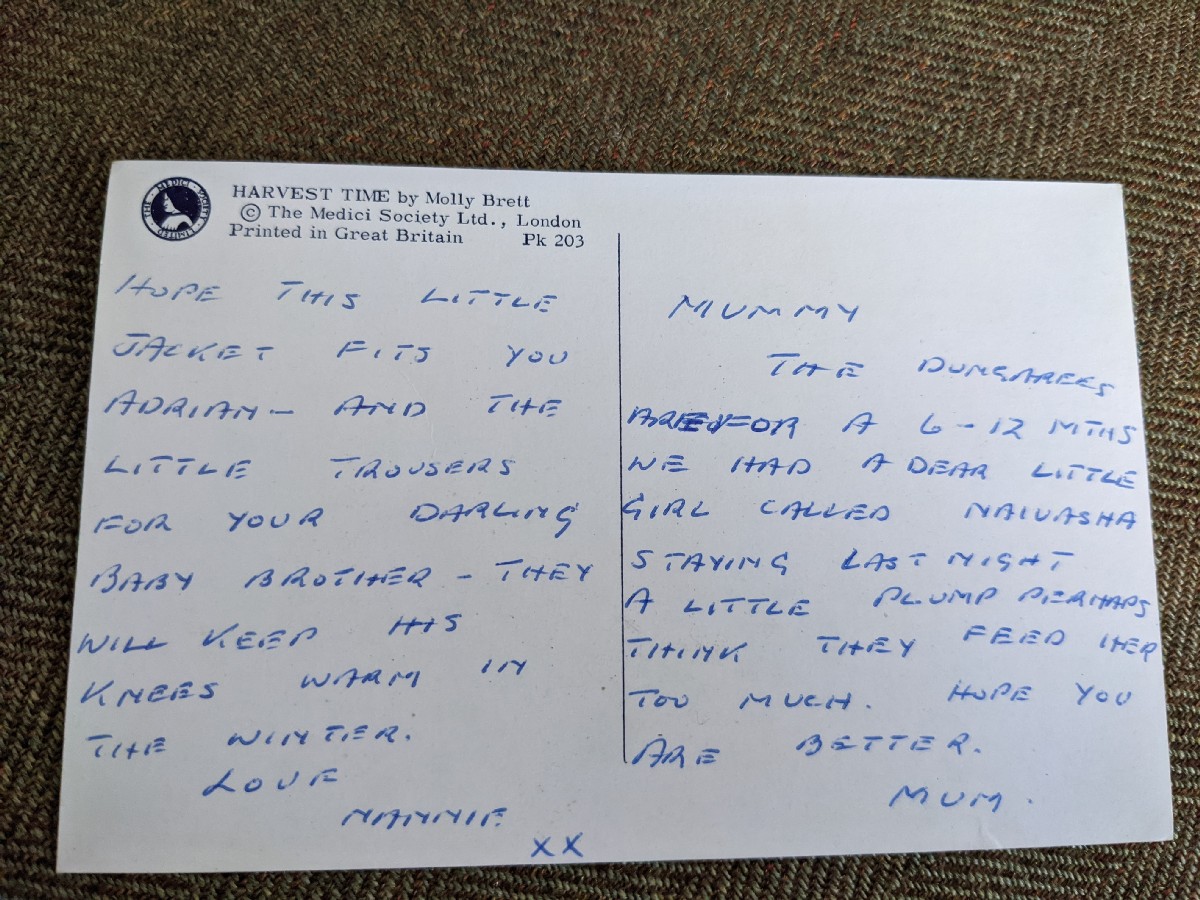 THE · MEDICI · SOCIETY · LIMITED
HARVEST TIME by Molly Brett
© The Medici Society Ltd., London
Printed in Great Britain Pk 203
HOPE THIS LITTLE
JACKET FITS YOU
ADRIAN – AND THE
LITTLE TROUSERS
FOR YOUR DARLING
BABY BROTHER – THEY
WILL KEEP HIS
KNEES WARM IN
THE WINTER.
LOVE
NANNIE
XX
MUMMY
THE DUNGAREES
ARE FOR A 6–12 MTHS
WE HAD A DEAR LITTLE
GIRL CALLED NAIVASHA
STAYING LAST NIGHT
A LITTLE PLUMP PERHAPS
THINK THEY FEED HER
TOO MUCH. HOPE YOU
ARE BETTER.
MUM.